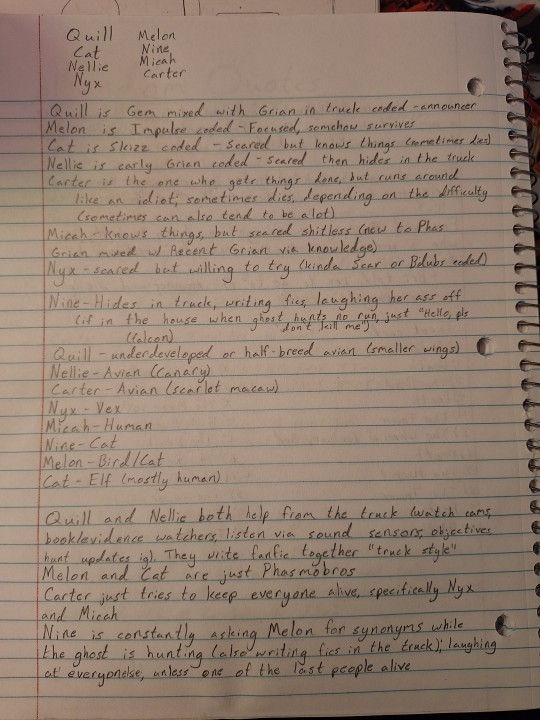 Quill Melon
Cat Nine
Nellie Micah
Nyx Carter
Quill is Gem mixed with Grian in truck coded - announcer
Melon is Impulse coded - Focused, somehow survives
Cat is Skizz coded - Scared but knows things (sometimes dies)
Nellie is early Grian coded - Scared then hides in the truck
Carter is the one who gets things done, but runs around
like an idiot; sometimes dies, depending on the difficulty
(sometimes can also tend to be a lot)
Micah - knows things, but scared shitless (new to Phas
Grian mixed w/ Recent Grian via knowledge)
Nyx - scared but willing to try (kinda Scar or Bdubs coded)
Nine - Hides in truck, writing fics, laughing her ass off
(if in the house when ghost hunts no run, just "Hello, pls
don't kill me")
(falcon)
Quill - underdeveloped or half-breed avian (smaller wings)
Nellie - Avian (Canary)
Carter - Avian (scarlet macaw)
Nyx - Vex
Micah - Human
Nine - Cat
Melon - Bird/Cat
Cat - Elf (mostly human)
Quill and Nellie both help from the truck (watch cams,
book/evidence watchers, listen via sound sensors, objectives,
hunt updates ig). They write fanfic together "truck style"
Melon and Cat are just Phasmobros
Carter just tries to keep everyone alive, specifically Nyx
and Micah
Nine is constantly asking Melon for synonyms while
the ghost is hunting (also writing fics in the truck); laughing
at everyonelse, unless one of the last people alive